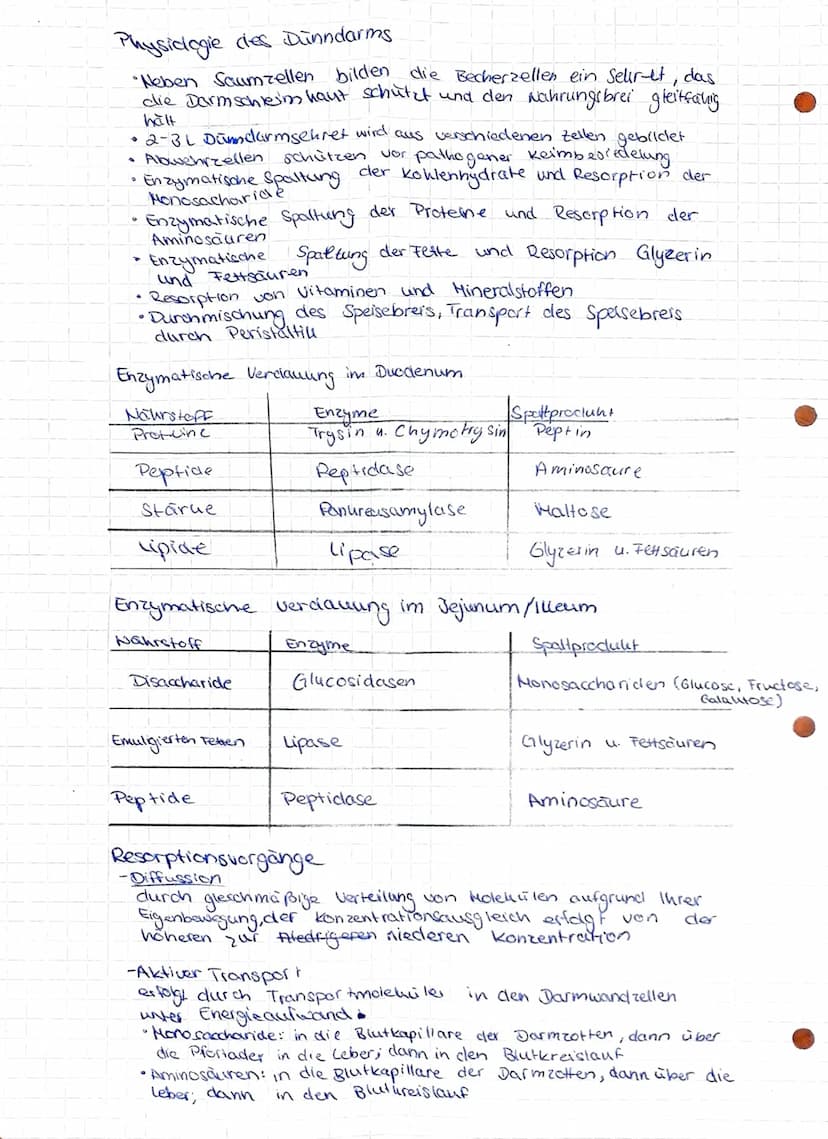 Physiologie des Dünndarms
• Neben Saumzellen bilden die Becherzellen ein Sekret, das
die Darmschleimhaut schützt und den Nahrungsbrei gleitfähig
hält
• 2-3 L Dünndarmsekret wird aus verschiedenen Zellen gebildet
• Abwehrzellen schützen vor pathogener Keimbesiedelung
• Enzymatische Spaltung der Kohlenhydrate und Resorption der
Monosacharide
• Enzymatische Spaltung der Proteine und Resorption der
Aminosäuren
• Enzymatische Spaltung der Fette und Resorption Glyzerin
und Fettsäuren
• Resorption von Vitaminen und Mineralstoffen
• Durchmischung des Speisebreis, Transport des Speisebreis
durch Peristaltik
Enzymatische Verdauung im Duodenum
Nährstoff Enzyme Spaltprodukt
Proteine Trysin u. Chymotrysin Peptin
Peptide Peptidase Aminosäure
Stärke Pankreasamylase Maltose
Lipide Lipase Glyzerin u. Fettsäuren
Enzymatische Verdauung im Jejunum/Illeum
Nährstoff Enzyme Spaltprodukt
Disaccharide Glucosidasen Monosacchariden (Glucose, Fructose,
Galaktose)
Emulgierten Fetten Lipase Glyzerin u. Fettsäuren
Peptide Peptidase Aminosäure
Resorptionsvorgänge
- Diffussion
durch gleichmäßige Verteilung von Molekülen aufgrund Ihrer
Eigenbewegung, der Konzentrationsausgleich erfolgt von der
höheren zur niedrigeren niederen Konzentration
- Aktiver Transport
erfolgt durch Transportmoleküle in den Darmwandzellen
unter Energieaufwand.
• Monosaccharide: in die Blutkapillare der Darmzotten, dann über
die Pfortader in die Leber; dann in den Blutkreislauf
• Aminosäuren: in die Blutkapillare der Darmzotten, dann über die
Leber; dann in den Blutkreislauf